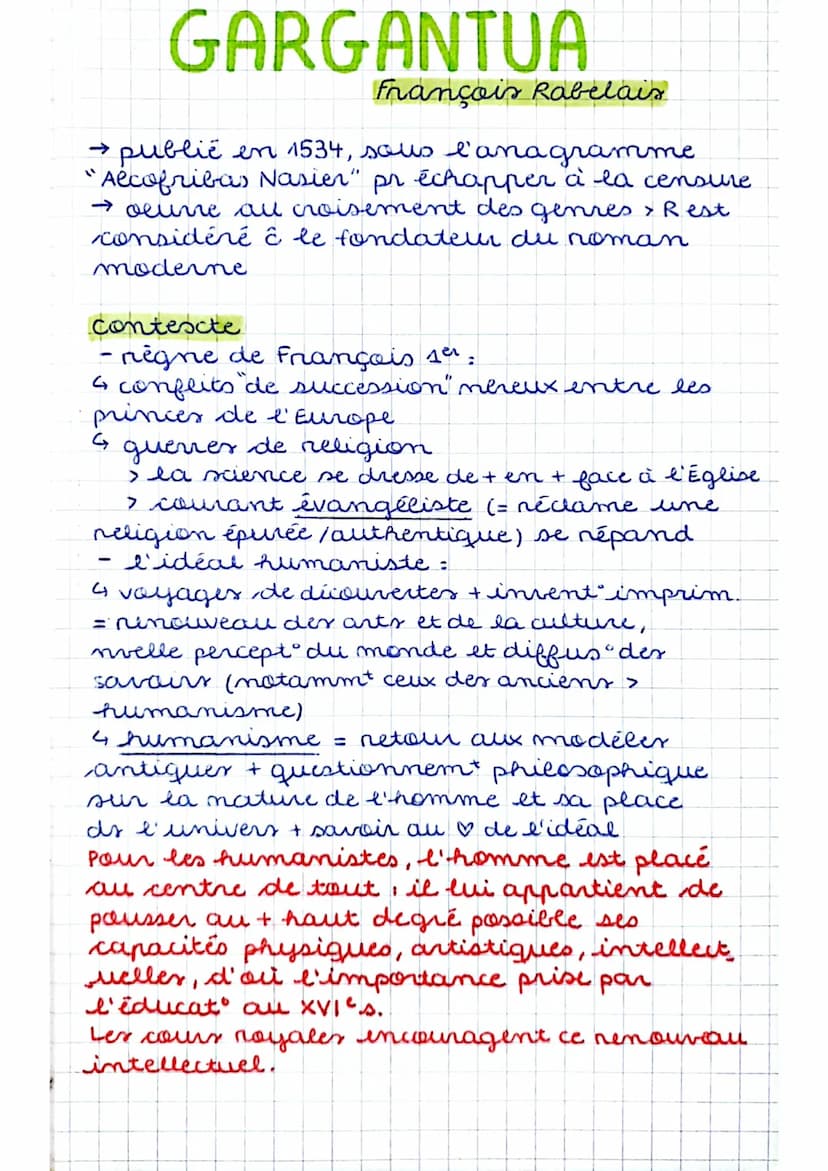 GARGANTUA
François Rabelais
→ publié en 1534, sous l'anagramme
"Alcofribas Nasier" pr échapper à la censure
→ oeuvre au croisement des genres > R est
considéré ĉ le fondateur du roman
moderne
Contexte
- règne de François 1er :
↳ conflits "de succession" nbreux entre les
princes de l'Europe
↳ guerres de religion
> la science se dresse de + en + face à l'Église
> courant évangéliste (= réclame une
religion épurée / authentique) se répand
- l'idéal humaniste :
↳ voyages de découvertes + invent° imprim.
= renouveau des arts et de la culture,
nvelle percept° du monde et diffus° des
savoirs (notammt ceux des anciens >
humanisme)
↳ humanisme = retour aux modèles
antiques + questionnemt philosophique
sur la nature de l'homme et sa place
ds l'univers + savoir au ♡ de l'idéal
Pour les humanistes, l'homme est placé
au centre de tout, il lui appartient de
pousser au + haut degré possible ses
capacités physiques, artistiques, intellect
uelles, d'où l'importance prise par
l'éducat° au XVIe s.
Les cours royales encouragent ce renouveau
intellectuel.